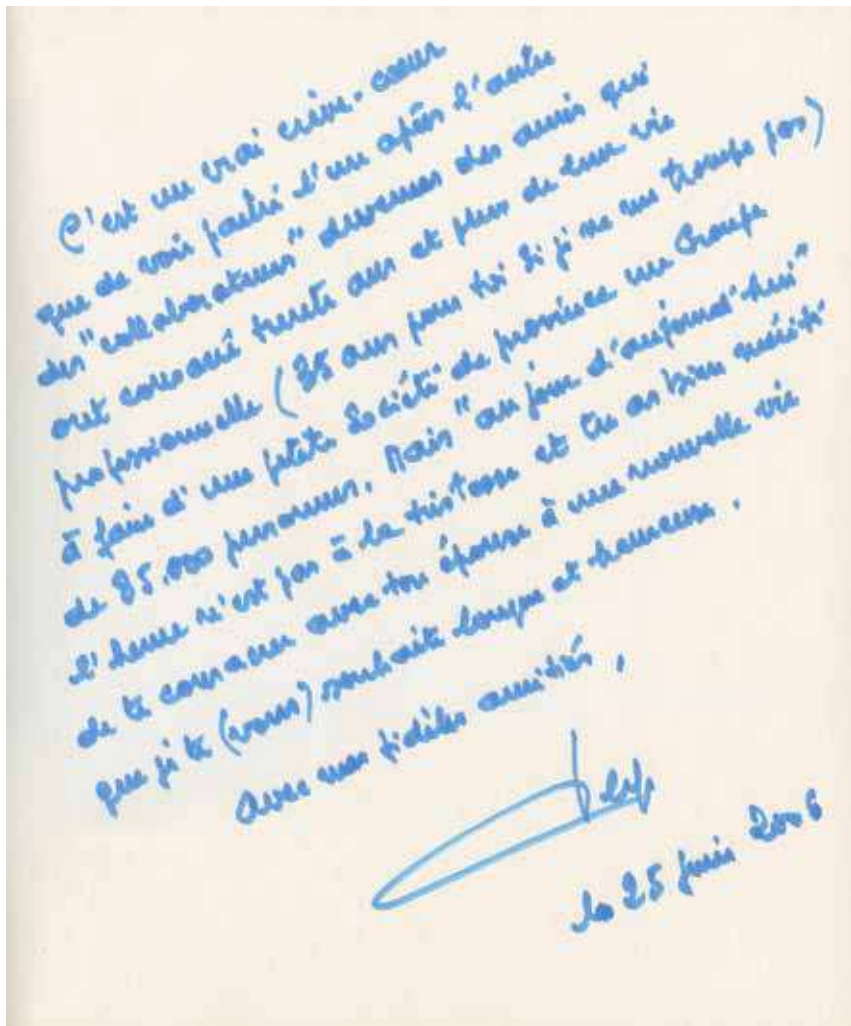 C'est un vrai crève-cœur
que de voir partir l'un après l'autre
des "collaborateurs" devenus des amis qui
ont consacré trente ans et plus de leur vie
professionnelle (35 ans pour toi si je ne me trompe pas)
à faire d'une petite Société de province un Groupe
de 85.000 personnes. Mais "au jour d'aujourd'hui"
l'heure n'est pas à la tristesse et tu as bien mérité
de te consacrer avec ton épouse à une nouvelle vie
que je te (vous) souhaite longue et heureuse.
Avec mes fidèles amitiés,
le 25 juin 2006